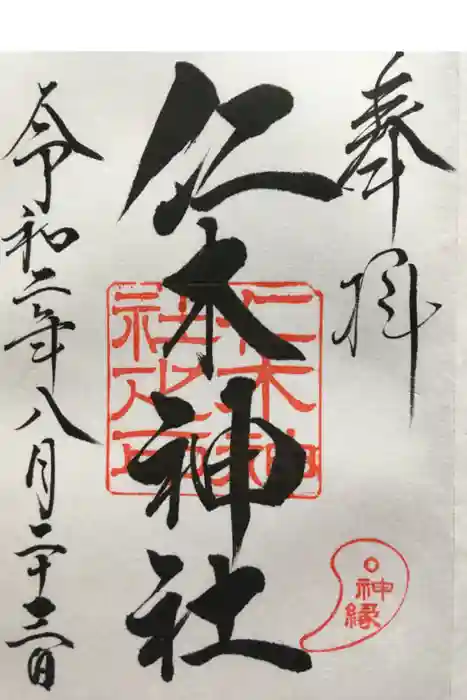 奉拝
仁木神社
仁木神
社之印
神縁
令和二年八月二十三日